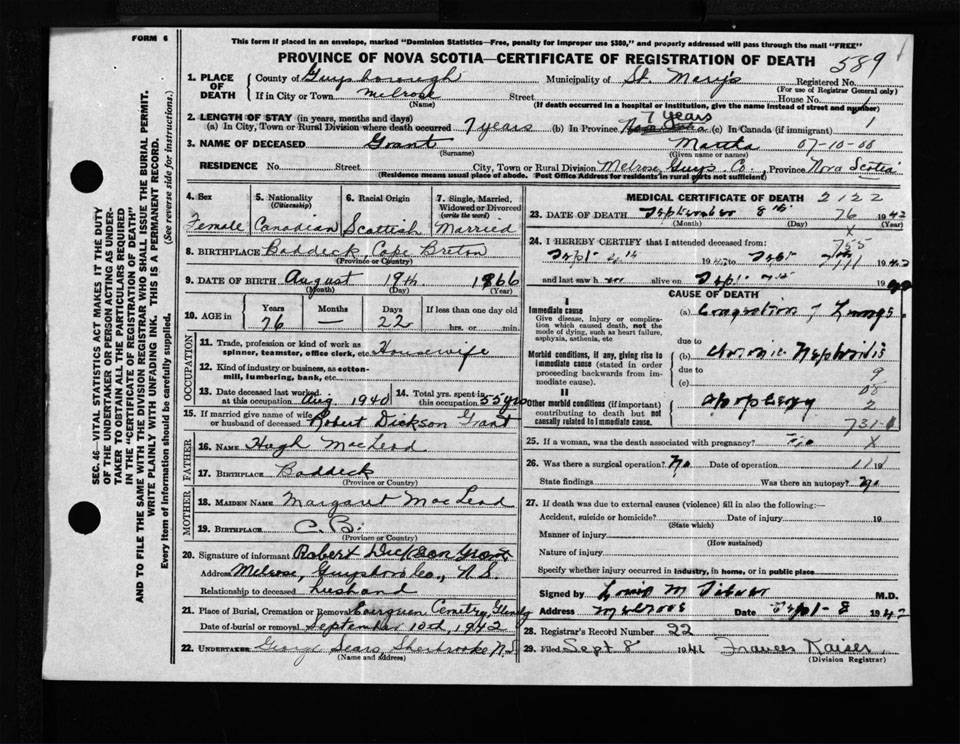 FORM 6
This form if placed in an envelope, marked "Dominion Statistics—Free, penalty for improper use $300," and properly addressed will pass through the mail "FREE"
PROVINCE OF NOVA SCOTIA—CERTIFICATE OF REGISTRATION OF DEATH
589
SEC. 46—VITAL STATISTICS ACT MAKES IT THE DUTY
OF THE UNDERTAKER OR PERSON ACTING AS UNDER-
TAKER TO OBTAIN ALL THE PARTICULARS REQUIRED
IN THE "CERTIFICATE OF REGISTRATION OF DEATH"
AND TO FILE THE SAME WITH THE DIVISION REGISTRAR WHO SHALL ISSUE THE BURIAL PERMIT.
WRITE PLAINLY WITH UNFADING INK. THIS IS A PERMANENT RECORD.
Every item of Information should be carefully supplied. (See reverse side for instructions.)
1. PLACE OF DEATH
County of Guysborough Municipality of St. Marys Registered No.
(For use of Registrar General only)
If in City or Town Melrose Street House No. 1
(Name) (If death occurred in a hospital or institution, give the name instead of street and number)
2. LENGTH OF STAY (in years, months and days) 7 years
(a) In City, Town or Rural Division where death occurred 7 years (b) In Province Nova Scotia (c) In Canada (if immigrant) 1
3. NAME OF DECEASED Grant Martha 07-10-00
(Surname) (Given name or names)
RESIDENCE No. Street City, Town or Rural Division Melrose Guys. Co., Province Nova Scotia
(Residence means usual place of abode. Post Office Address for residents in rural parts not sufficient)
4. Sex Female
5. Nationality (Citizenship) Canadian
6. Racial Origin Scottish
7. Single, Married, Widowed or Divorced (write the word) Married
8. BIRTHPLACE Baddeck, Cape Breton
(Province or Country)
9. DATE OF BIRTH August 19th 1866
(Month) (Day) (Year)
10. AGE in Years 76 Months — Days 22 If less than one day old
hrs. or min.
OCCUPATION
11. Trade, profession or kind of work as spinner, teamster, office clerk, etc. Housewife
12. Kind of industry or business, as cotton-mill, lumbering, bank, etc.
13. Date deceased last worked at this occupation Aug. 1940
14. Total yrs. spent in this occupation 55 yrs
15. If married give name of wife or husband of deceased Robert Dickson Grant
FATHER
16. NAME Hugh MacLeod
17. BIRTHPLACE Baddeck
(Province or Country)
MOTHER
18. MAIDEN NAME Margaret MacLeod
19. BIRTHPLACE C. B.
(Province or Country)
20. Signature of informant Robert Dickson Grant
Address Melrose, Guysboro Co., N.S.
Relationship to deceased husband
21. Place of Burial, Cremation or Removal Cemetry,
Date of burial or removal September 10th, 1942
22. UNDERTAKER George Sears, Sherbrooke N.S.
(Name and Address)
MEDICAL CERTIFICATE OF DEATH 2122
23. DATE OF DEATH September 8th 76 1942
(Month) (Day) (Year)
x
24. I HEREBY CERTIFY that I attended deceased from: 755
Sept 19 to Sept 7th 1942
and last saw h alive on Sept 19
CAUSE OF DEATH
I
Immediate cause
Give disease, injury or complication which caused death, not the mode of dying, such as heart failure, asphyxia, asthenia, etc
(a) Congestion of Lungs
due to
Morbid conditions, if any, giving rise to immediate cause (stated in order proceeding backwards from immediate cause).
(b) chronic Nephritis
due to
9
(c)
08
II
Other morbid conditions (if important) contributing to death but not causally related to immediate cause.
2
731-1
25. If a woman, was the death associated with pregnancy? no X
26. Was there a surgical operation? No Date of operation 19
State findings Was there an autopsy? No
27. If death was due to external causes (violence) fill in also the following:—
Accident, suicide or homicide? Date of injury 19
(State which)
Manner of injury
(How sustained)
Nature of injury
Specify whether injury occurred in industry, in home, or in public place
Signed by M.D.
Address Melrose Date Sept-8 1942
28. Registrar's Record Number 22
29. Filed Sept 8 19 Frances Kaiser
(Division Registrar)